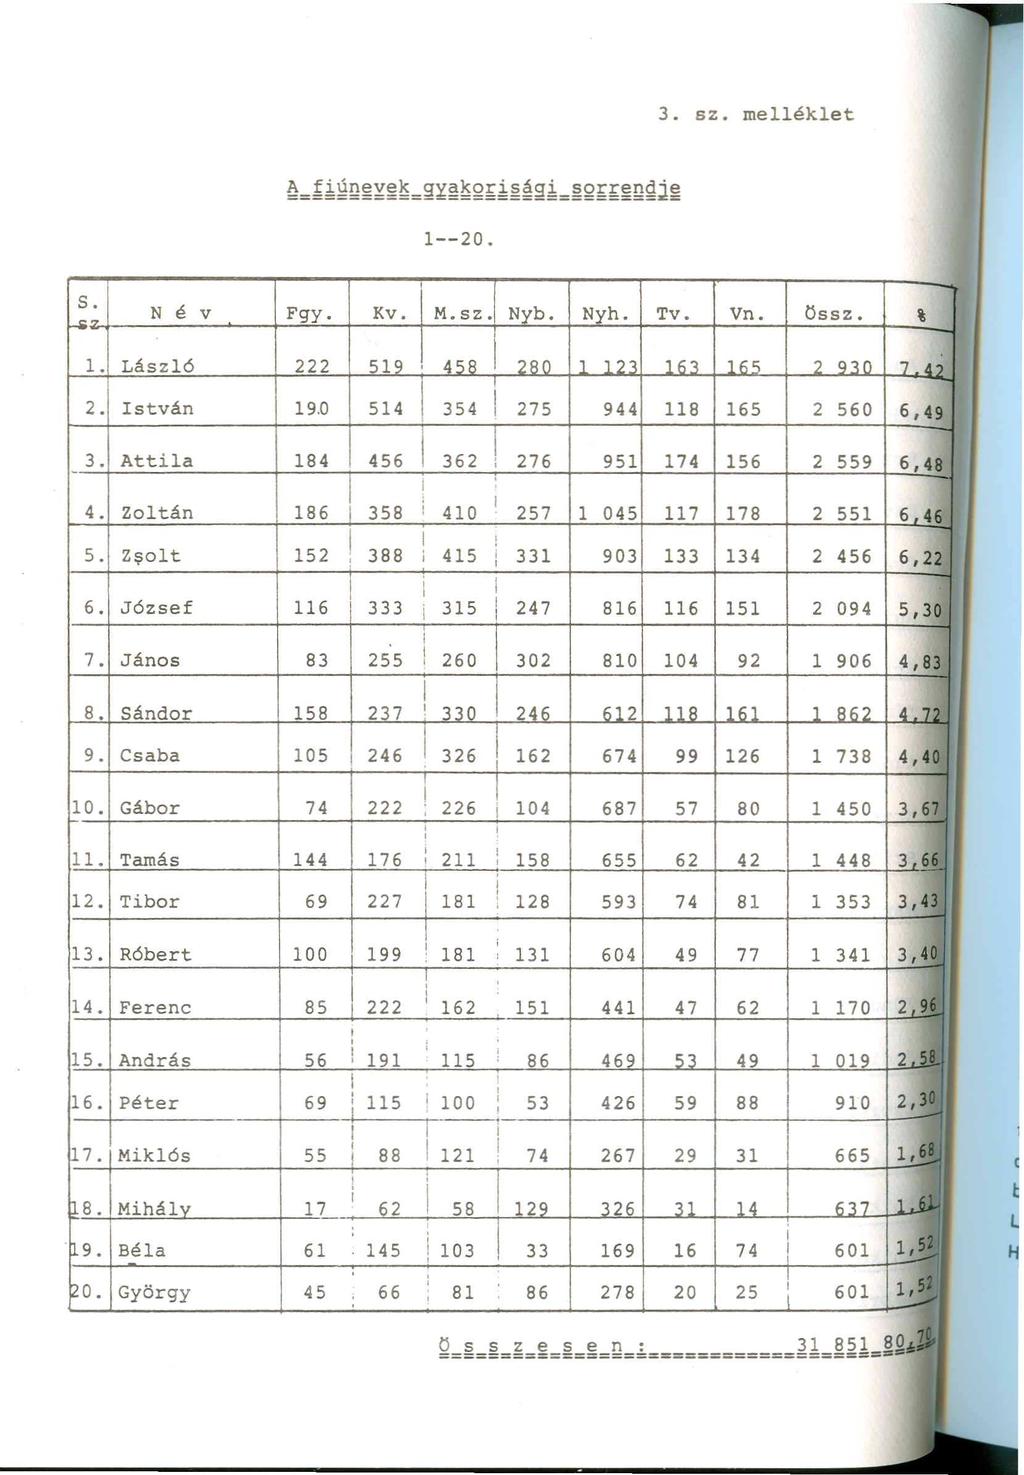 3. sz. melléklet
A fiúnevek gyakorisági sorrendje
1--20.
S. sz. N é v Fgy. Kv. M.sz. Nyb. Nyh. Tv. Vn. Össz. %
1. László 222 519 458 280 1 123 163 165 2 930 7,42
2. István 19.0 514 354 275 944 118 165 2 560 6,49
3. Attila 184 456 362 276 951 174 156 2 559 6,48
4. Zoltán 186 358 410 257 1 045 117 178 2 551 6,46
5. Zsolt 152 388 415 331 903 133 134 2 456 6,22
6. József 116 333 315 247 816 116 151 2 094 5,30
7. János 83 255 260 302 810 104 92 1 906 4,83
8. Sándor 158 237 330 246 612 118 161 1 862 4,72
9. Csaba 105 246 326 162 674 99 126 1 738 4,40
10. Gábor 74 222 226 104 687 57 80 1 450 3,67
11. Tamás 144 176 211 158 655 62 42 1 448 3,66
12. Tibor 69 227 181 128 593 74 81 1 353 3,43
13. Róbert 100 199 181 131 604 49 77 1 341 3,40
14. Ferenc 85 222 162 151 441 47 62 1 170 2,96
15. András 56 191 115 86 469 53 49 1 019 2,58
16. Péter 69 115 100 53 426 59 88 910 2,30
17. Miklós 55 88 121 74 267 29 31 665 1,68
18. Mihály 17 62 58 129 326 31 14 637 1,61
19. Béla 61 145 103 33 169 16 74 601 1,52
20. György 45 66 81 86 278 20 25 601 1,52
Ö s s z e s e n : 31 851 80,70